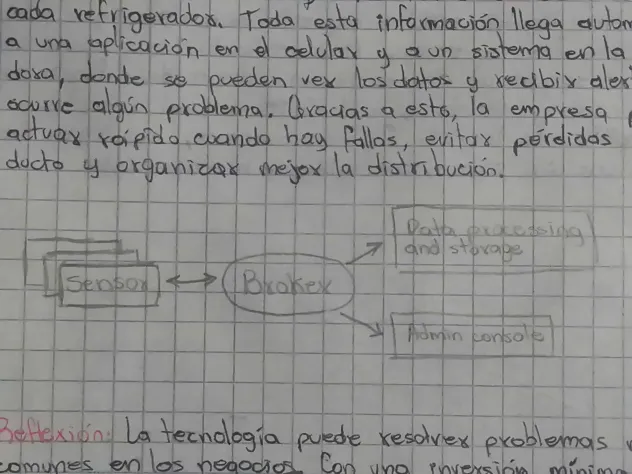 cada refrigerador. Toda esta información llega autom
a una aplicación en el celular y a un sistema en la
dora, donde se pueden ver los datos y recibir aler
ocurre algún problema. Gracias a esto, la empresa
actuar rápido cuando hay fallas, evitar pérdidas
ducto y organizar mejor la distribución.
Data processing
and storage
Sensor
Broker
Admin console
Reflexión: La tecnología puede resolver problemas
comunes en los negocios. Con una inversión mínima